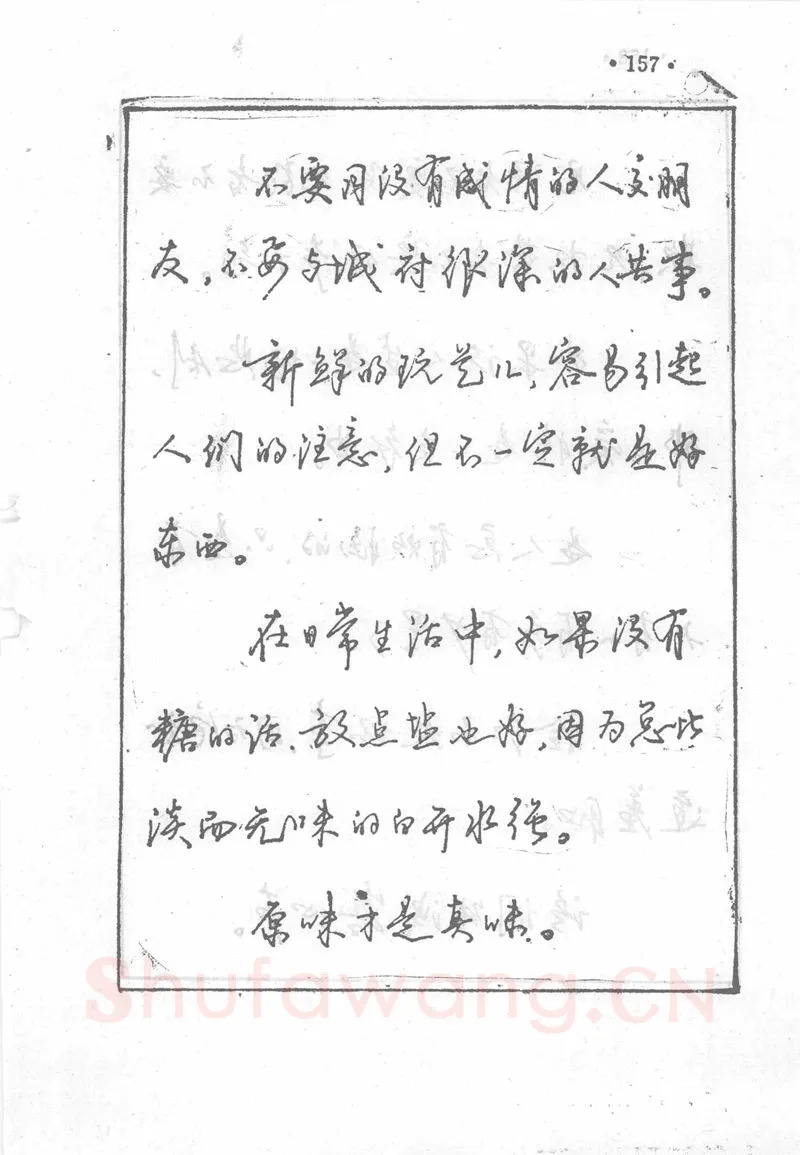 ·157·
不要同没有感情的人交朋
友，不要与城府很深的人共事。
新鲜的玩艺儿，容易引起
人们的注意，但不一定就是好
东西。
在日常生活中，如果没有
糖的话、放点盐也好，因为总比
淡而无味的白开水强。
原味才是真味。
Shufawang.CN